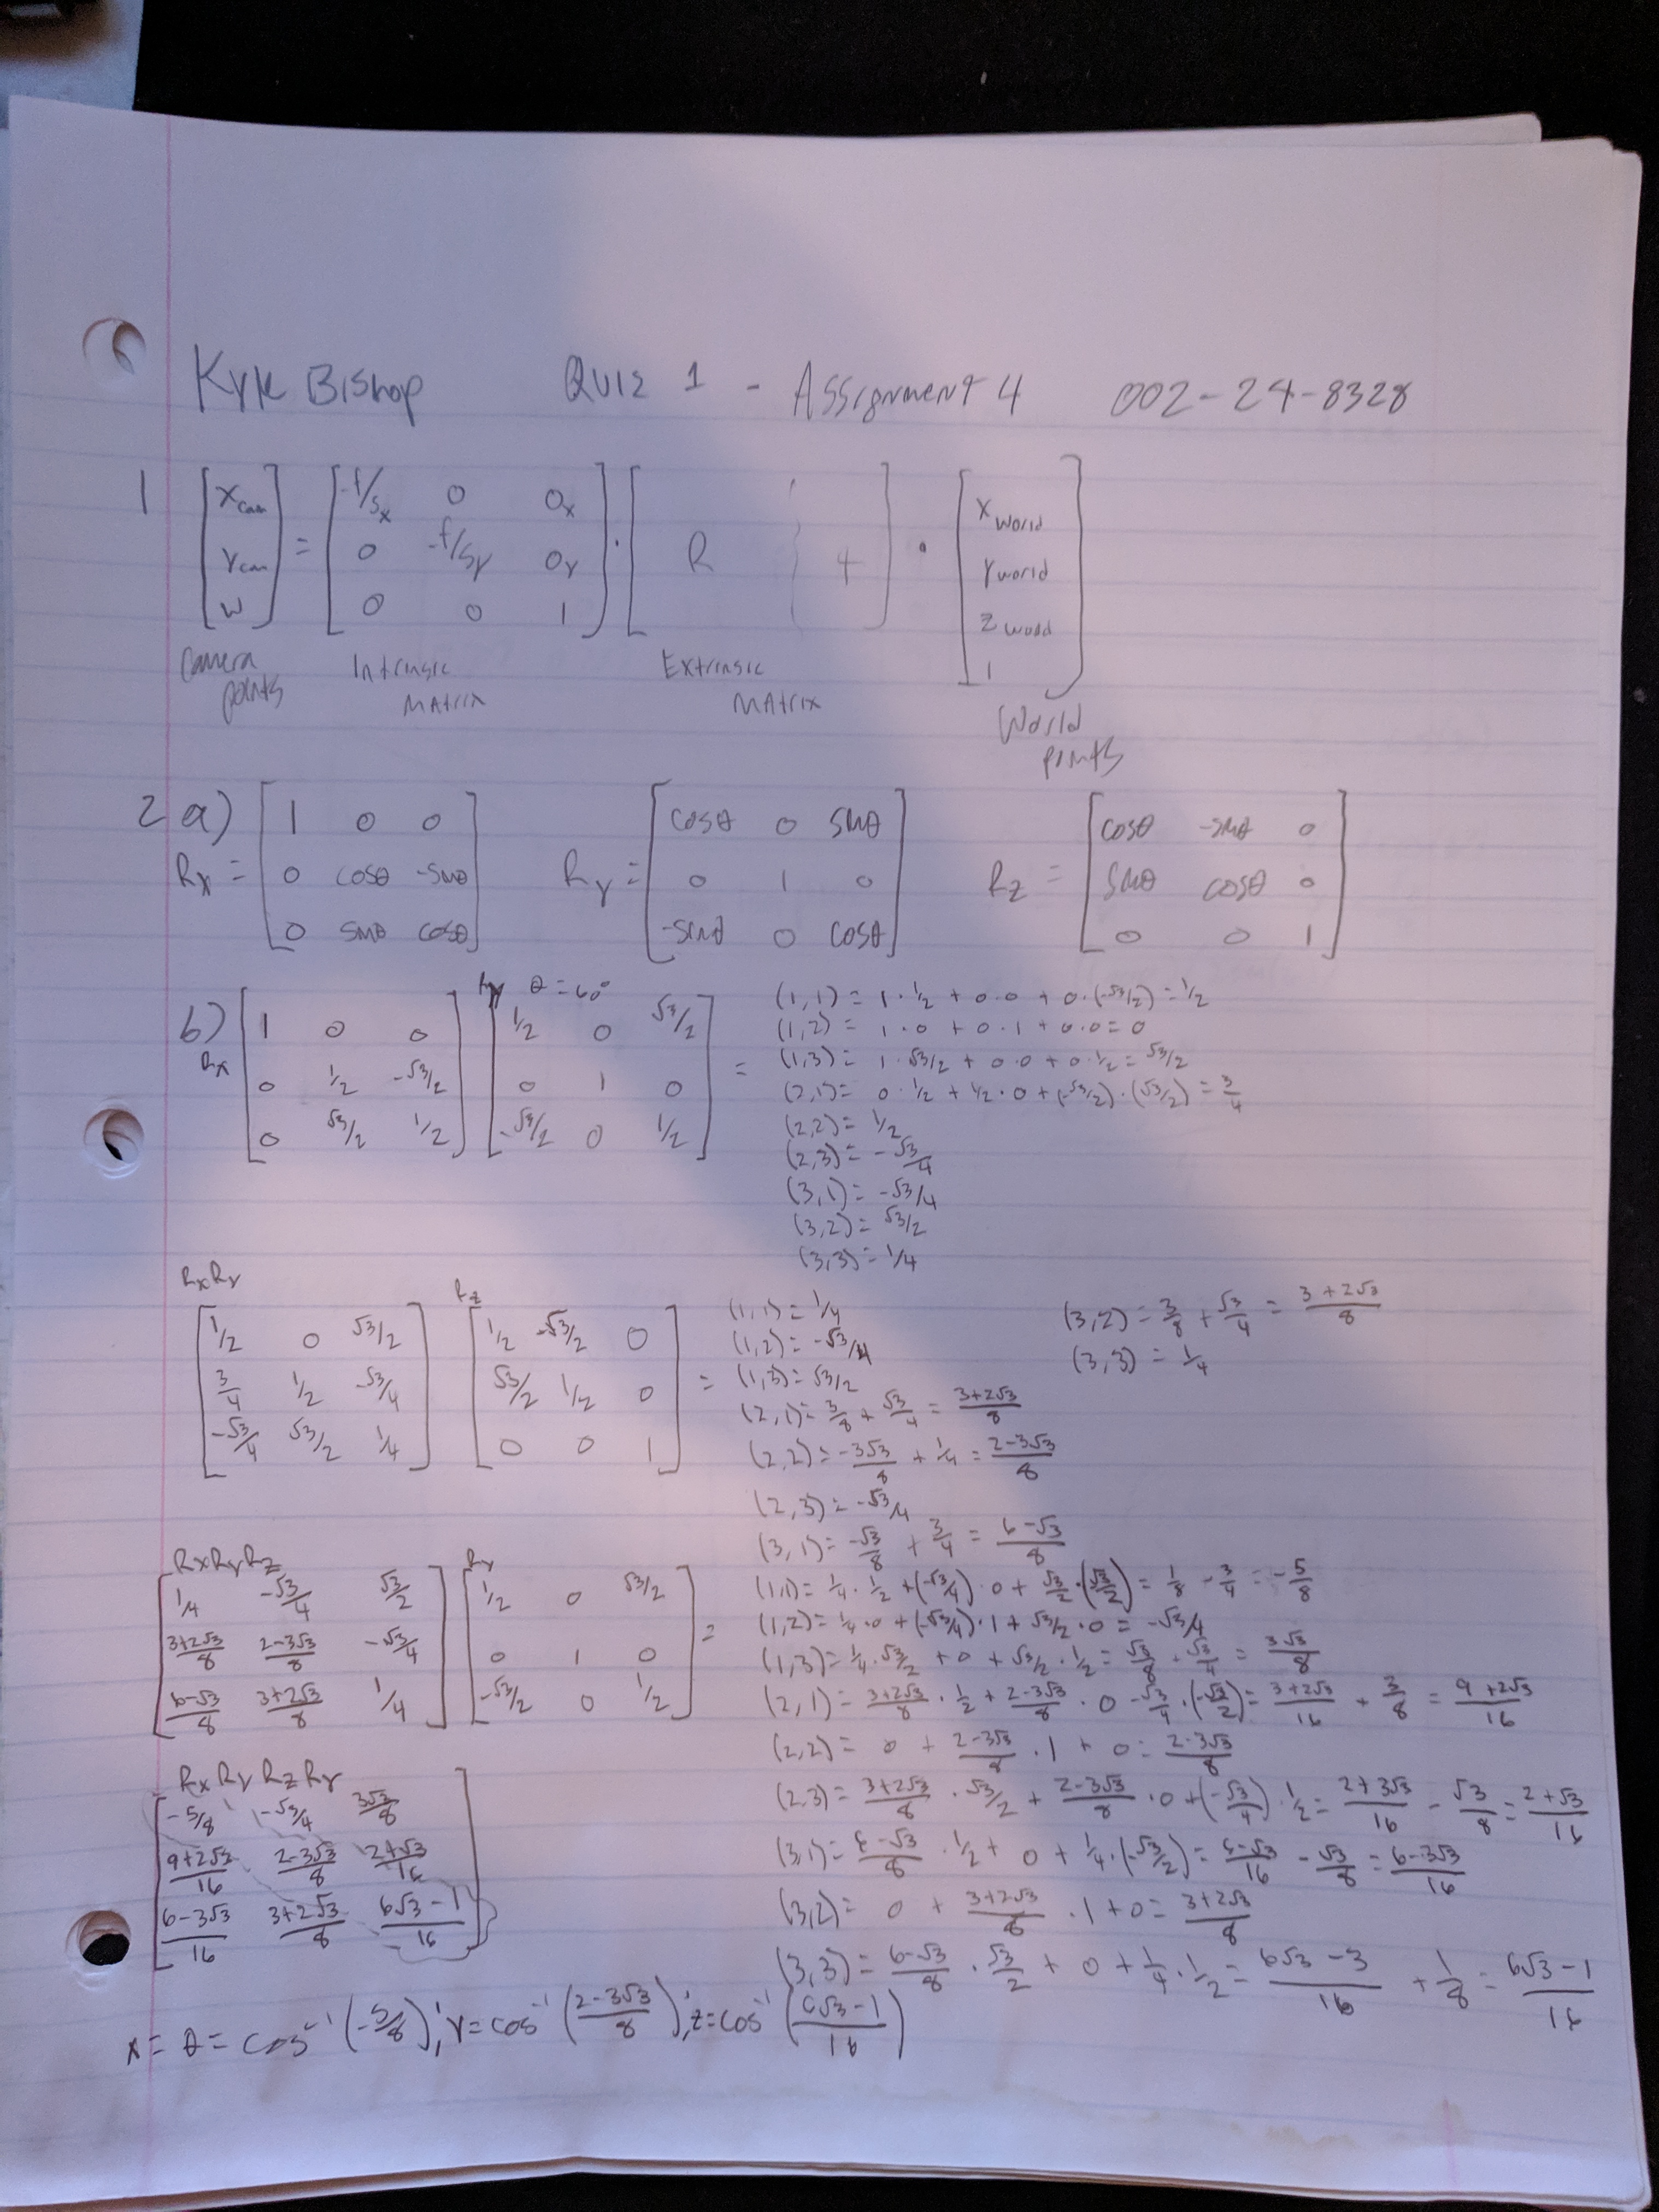 Kyle Bishop Quiz 1 - Assignment 4 002-24-8328
1 [Xcam Ycam W] = [-f/Sx 0 Ox; 0 -f/Sy Oy; 0 0 1] · [R | t] · [Xworld Yworld Zworld 1]
Camera points Intrinsic Matrix Extrinsic Matrix World points
2 a)
Rx = [1 0 0; 0 cosθ -sinθ; 0 sinθ cosθ] Ry = [cosθ 0 sinθ; 0 1 0; -sinθ 0 cosθ] Rz = [cosθ -sinθ 0; sinθ cosθ 0; 0 0 1]
b) Rx [1 0 0; 0 1/2 -√3/2; 0 √3/2 1/2] Ry θ=60° [1/2 0 √3/2; 0 1 0; -√3/2 0 1/2] =
(1,1) = 1·1/2 + 0·0 + 0·(-√3/2) = 1/2
(1,2) = 1·0 + 0·1 + 0·0 = 0
(1,3) = 1·√3/2 + 0·0 + 0·1/2 = √3/2
(2,1) = 0·1/2 + 1/2·0 + (-√3/2)·(√3/2) = 3/4
(2,2) = 1/2
(2,3) = -√3/4
(3,1) = -√3/4
(3,2) = √3/2
(3,3) = 1/4
RxRy [1/2 0 √3/2; 3/4 1/2 -√3/4; -√3/4 √3/2 1/4] Rz [1/2 -√3/2 0; √3/2 1/2 0; 0 0 1] =
(1,1) = 1/4
(1,2) = -√3/4
(1,3) = √3/2
(2,1) = 3/8 + √3/4 = (3+2√3)/8
(2,2) = -3√3/8 + 1/4 = (2-3√3)/8
(2,3) = -√3/4
(3,1) = -√3/8 + 3/4 = (6-√3)/8
(3,2) = 3/8 + √3/4 = (3+2√3)/8
(3,3) = 1/4
RxRyRz [1/4 -√3/4 √3/2; (3+2√3)/8 (2-3√3)/8 -√3/4; (6-√3)/8 (3+2√3)/8 1/4] Ry [1/2 0 √3/2; 0 1 0; -√3/2 0 1/2] =
(1,1) = 1/4·1/2 + (-√3/4)·0 + √3/2·(-√3/2) = 1/8 - 3/4 = -5/8
(1,2) = 1/4·0 + (-√3/4)·1 + √3/2·0 = -√3/4
(1,3) = 1/4·√3/2 + 0 + √3/2·1/2 = √3/8 + √3/4 = 3√3/8
(2,1) = (3+2√3)/8·1/2 + (2-3√3)/8·0 -√3/4·(-√3/2) = (3+2√3)/16 + 3/8 = (9+2√3)/16
(2,2) = 0 + (2-3√3)/8·1 + 0 = (2-3√3)/8
(2,3) = (3+2√3)/8·√3/2 + (2-3√3)/8·0 + (-√3/4)·1/2 = (2+3√3)/16 - √3/8 = (2+√3)/16
(3,1) = (6-√3)/8·1/2 + 0 + 1/4·(-√3/2) = (6-√3)/16 - √3/8 = (6-3√3)/16
(3,2) = 0 + (3+2√3)/8·1 + 0 = (3+2√3)/8
(3,3) = (6-√3)/8·√3/2 + 0 + 1/4·1/2 = (6√3-3)/16 + 1/8 = (6√3-1)/16
RxRyRzRy [-5/8 -√3/4 3√3/8; (9+2√3)/16 (2-3√3)/8 (2+√3)/16; (6-3√3)/16 (3+2√3)/8 (6√3-1)/16]
x = θ = cos⁻¹(-5/8); y = cos⁻¹((2-3√3)/8); z = cos⁻¹((6√3-1)/16)